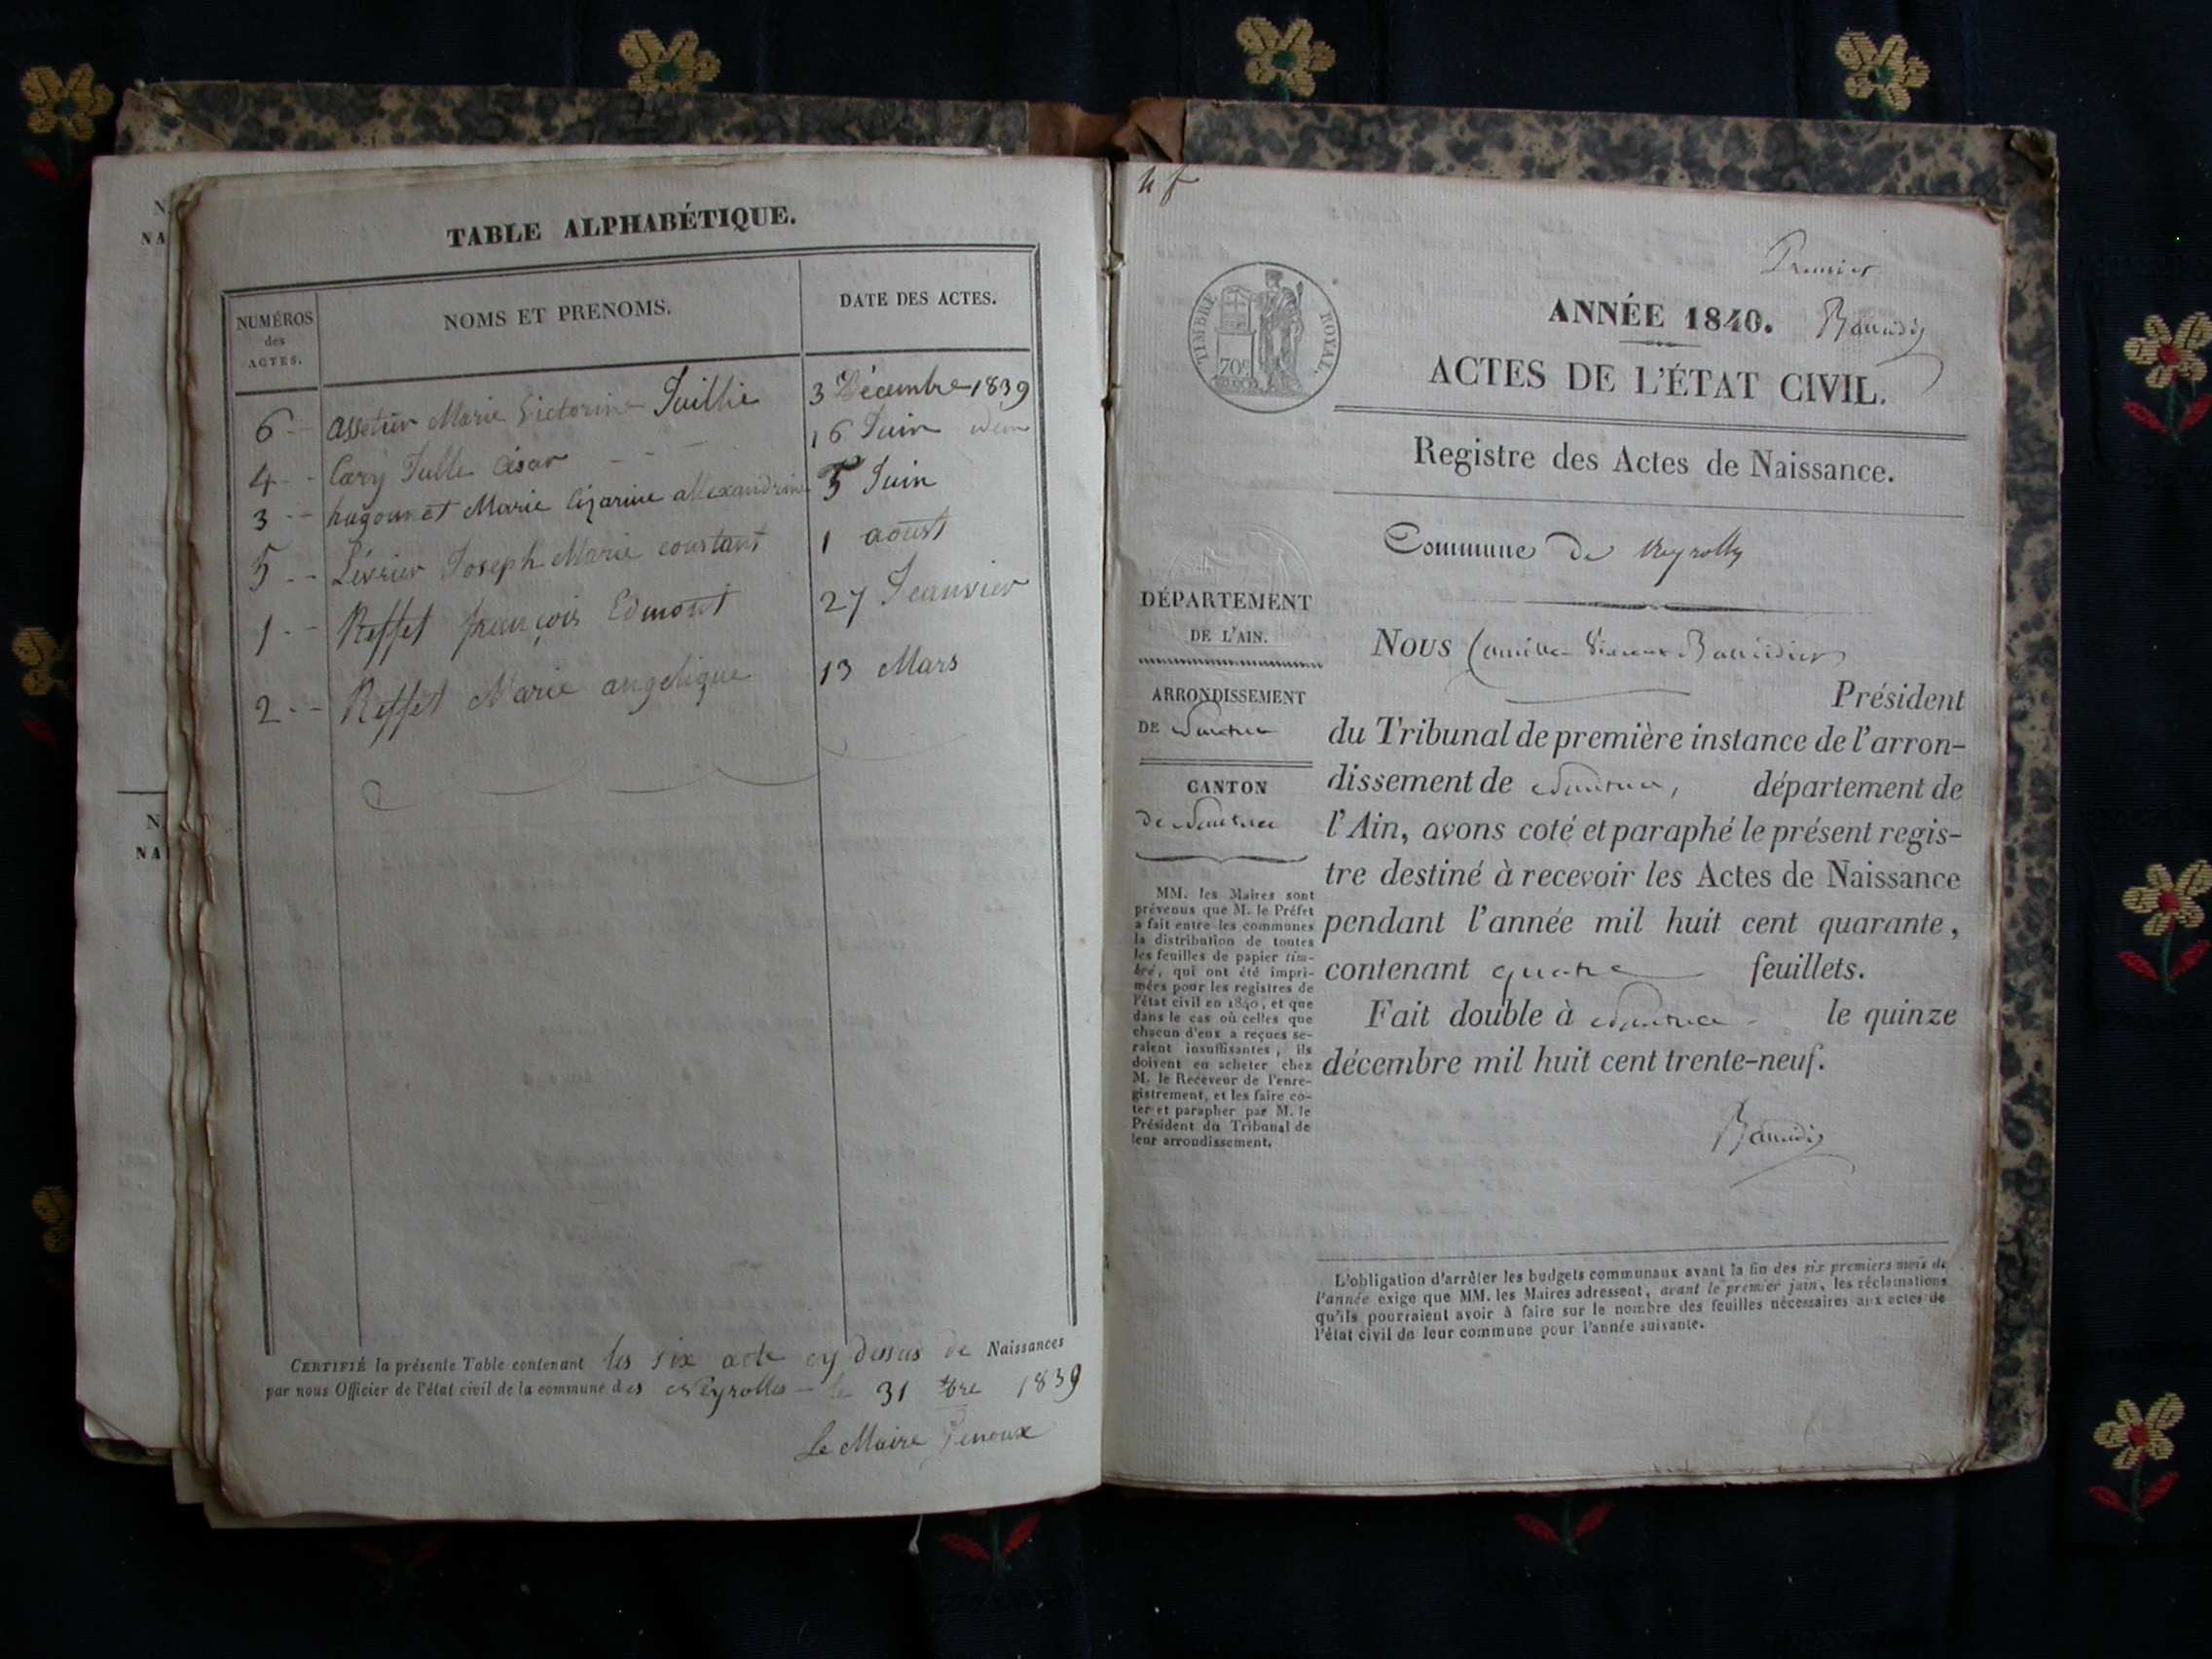 N
NA
N
NA
TABLE ALPHABÉTIQUE.
NUMÉROS des ACTES. NOMS ET PRENOMS. DATE DES ACTES.
6 Marie Victorine 3 Décembre 1839
4 Cary Julle César 16 Juin idem
3 hugonnet Marie 5 Juin
5 Lévrier Joseph Marie constant 1 aoust
1 Reffet françois Edmont 27 Jeanvier
2 Reffet Marie angelique 13 Mars
CERTIFIÉ la présente Table contenant les six acte cy dessus de Naissances
par nous Officier de l'état civil de la commune des Neyrolles le 31 xbre 1839
Le Maire
4 f
Premier
TIMBRE ROYAL.
70c
ANNÉE 1840.
ACTES DE L'ÉTAT CIVIL.
Registre des Actes de Naissance.
Commune De Neyrolles
DÉPARTEMENT
DE L'AIN.
ARRONDISSEMENT
DE Nantua
CANTON
de Nantua
MM. les Maires sont
prévenus que M. le Préfet
a fait entre les communes
la distribution de toutes
les feuilles de papier tim-
bré, qui ont été impri-
mées pour les registres de
l'état civil en 1840, et que
dans le cas où celles que
chacun d'eux a reçues se-
raient insuffisantes, ils
doivent en acheter chez
M. le Receveur de l'enre-
gistrement, et les faire co-
ter et parapher par M. le
Président du Tribunal de
leur arrondissement.
Nous Camille
Président
du Tribunal de première instance de l'arron-
dissement de Nantua, département de
l'Ain, avons coté et paraphé le présent regis-
tre destiné à recevoir les Actes de Naissance
pendant l'année mil huit cent quarante,
contenant quatre feuillets.
Fait double à Nantua le quinze
décembre mil huit cent trente-neuf.
L'obligation d'arrêter les budgets communaux avant la fin des six premiers mois de
l'année exige que MM. les Maires adressent, avant le premier juin, les réclamations
qu'ils pourraient avoir à faire sur le nombre des feuilles nécessaires aux actes de
l'état civil de leur commune pour l'année suivante.